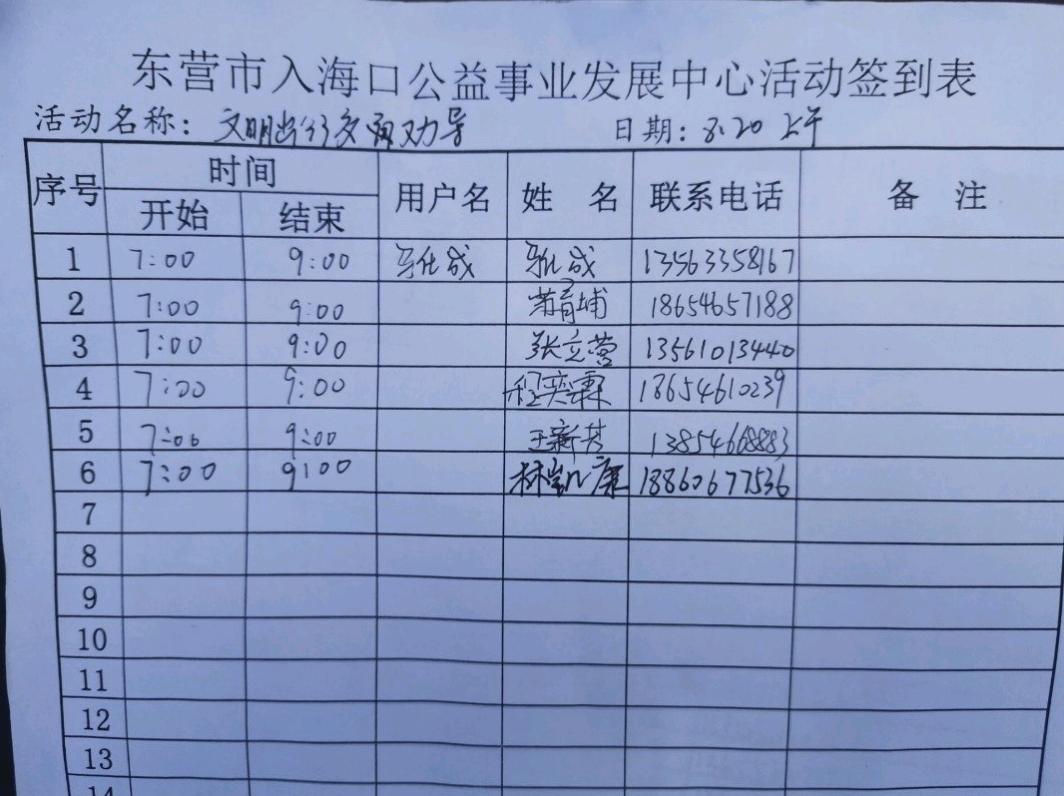 东营市入海口公益事业发展中心活动签到表
活动名称: 文明出行交通劝导 日期: 8.20 上午
序号 时间 用户名 姓 名 联系电话 备 注
开始 结束
1 7:00 9:00 13563358167
2 7:00 9:00 18654657188
3 7:00 9:00 张立营 13561013440
4 7:00 9:00 程奕霖 18654610239
5 7:00 9:00 王新芳 13854668883
6 7:00 9:00 林凯康 18860677536
7
8
9
10
11
12
13
14